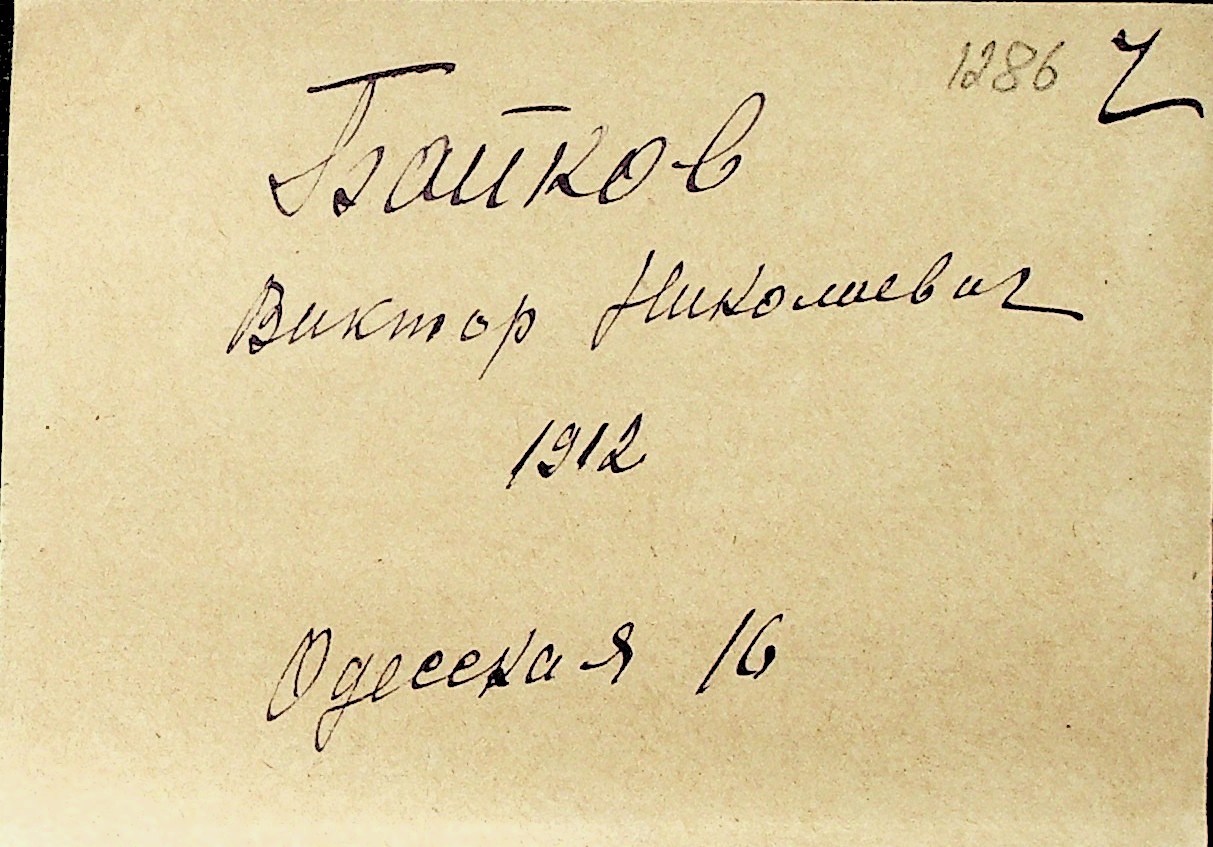 1286 Ч
Байков
Виктор Николаевич
1912
Одесская 16